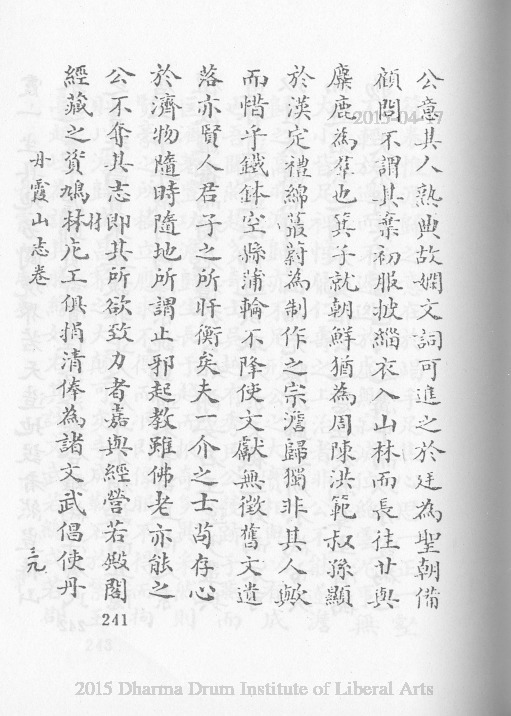 公意其人熟典故嫻文詞可進之於廷為聖朝備
顧問不謂其棄初服披緇衣入山林而長往甘與
麋鹿為羣也箕子就朝鮮猶為周陳洪範叔孫顯
於漢定禮綿蕞蔚為制作之宗澹歸獨非其人歟
而惜乎鐵鉢空縣蒲輪不降使文獻無徵舊文遺
落亦賢人君子之所盱衡矣夫一介之士苟存心
於濟物隨時隨地所謂止邪起教雖佛老亦能之
公不奪其志即其所欲致力者嘉與經營若殿閣
經藏之資鳩林庀工俱捐清俸為諸文武倡使丹
材
丹霞山志卷
三九
241
2015-04-17
2015 Dharma Drum Institute of Liberal Arts